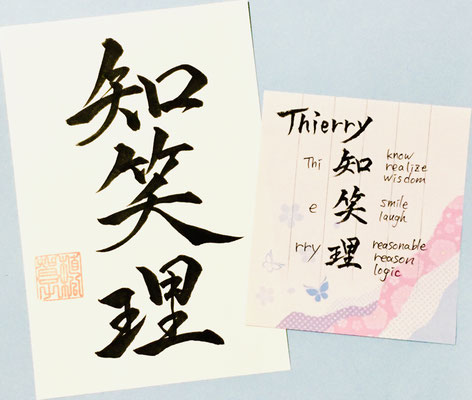 知
笑
理
Thierry
Thi 知 know
realize
wisdom
e 笑 smile
laugh
rry 理 reasonable
reason
logic